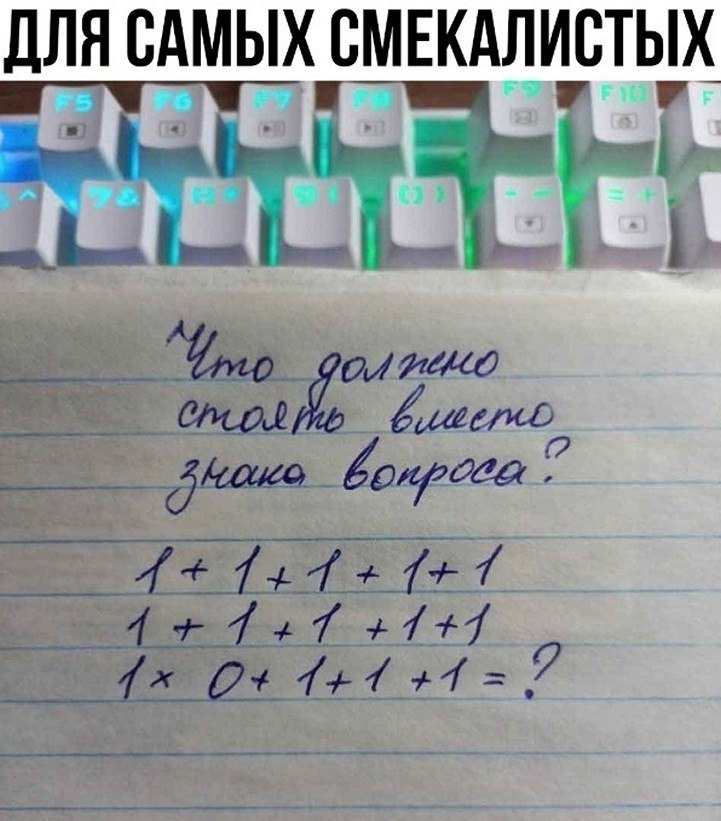 ДЛЯ САМЫХ СМЕКАЛИСТЫХ
F5 F6 F7 F8 F9 F10 F
^ 7& 9( 0) - = +
Что должно
стоять вместо
знака вопроса?
1 + 1 + 1 + 1 + 1
1 + 1 + 1 + 1 + 1
1 × 0 + 1 + 1 + 1 = ?